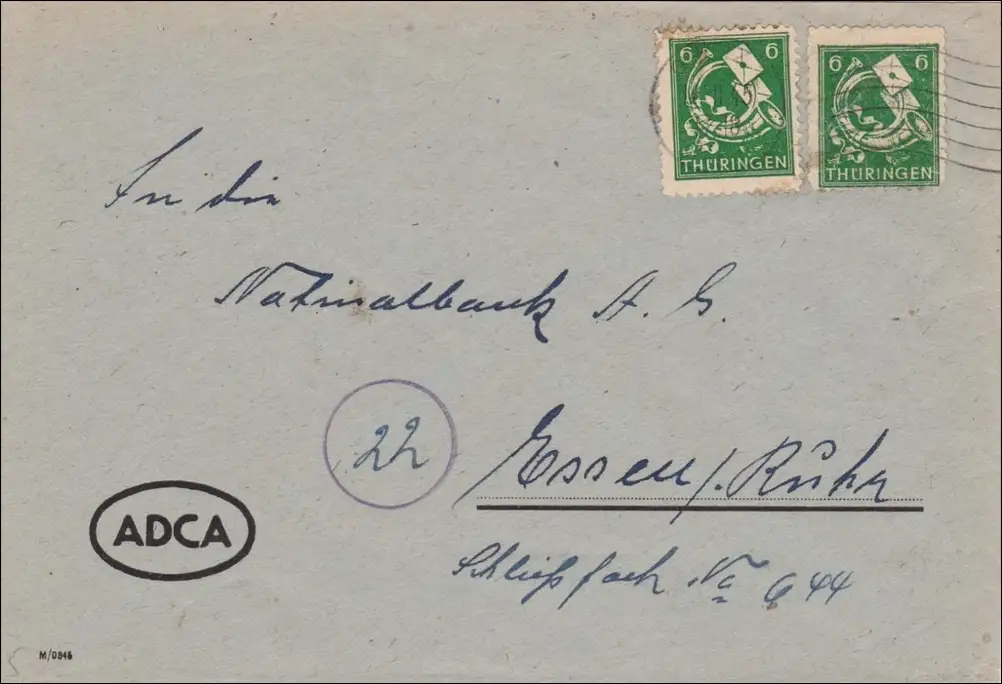 6 6
THÜRINGEN
6 6
THÜRINGEN
An die
Nationalbank A. G.
22
Essen/Ruhr
Schließfach No 644
ADCA
M/0845